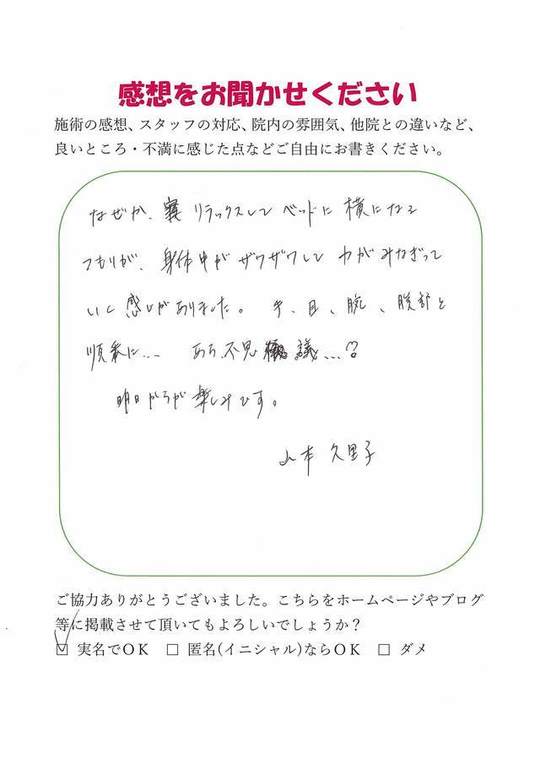 感想をお聞かせください
施術の感想、スタッフの対応、院内の雰囲気、他院との違いなど、
良いところ・不満に感じた点などご自由にお書きください。
なぜか、リラックスして ベッドに 横になる
つもりが、身体中が ザワザワして 力が みなぎって
いく 感じがありました。手、目、腕、腹部と
順番に... あら、不思議...?
明日からが 楽しみです。
山本 久里子
ご協力ありがとうございました。こちらをホームページやブログ
等に掲載させて頂いてもよろしいでしょうか？
☑ 実名でＯＫ □ 匿名(イニシャル)ならＯＫ □ ダメ